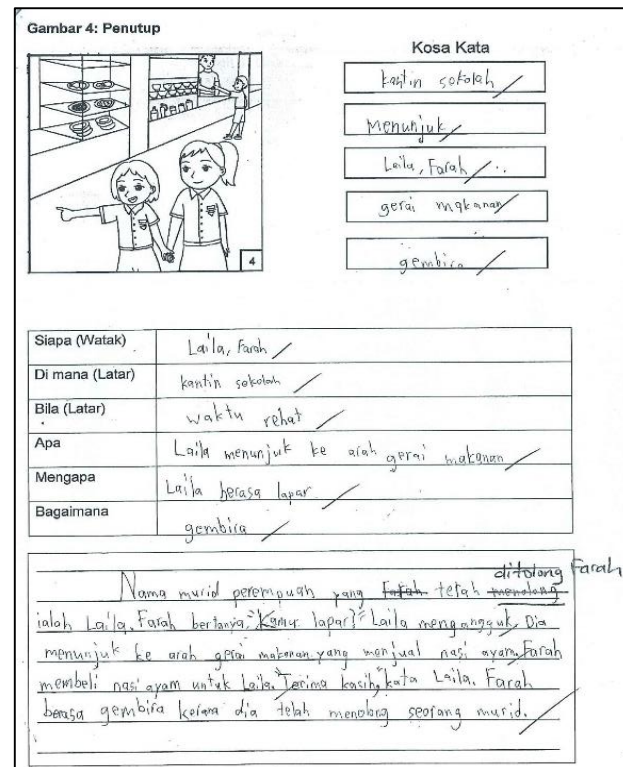 Gambar 4: Penutup
4
Kosa Kata
kantin sekolah
Menunjuk
Laila, Farah
gerai makanan
gembira
Siapa (Watak)
Laila, Farah
Di mana (Latar)
kantin sekolah
Bila (Latar)
waktu rehat
Apa
Laila menunjuk ke arah gerai makanan
Mengapa
Laila berasa lapar
Bagaimana
gembira
ditolong Farah
Nama murid perempuan yang Farah telah menolong
ialah Laila. Farah bertanya, "Kamu lapar?" Laila mengangguk. Dia
menunjuk ke arah gerai makanan yang menjual nasi ayam. Farah
membeli nasi ayam untuk Laila. "Terima kasih," kata Laila. Farah
berasa gembira kerana dia telah menolong seorang murid.